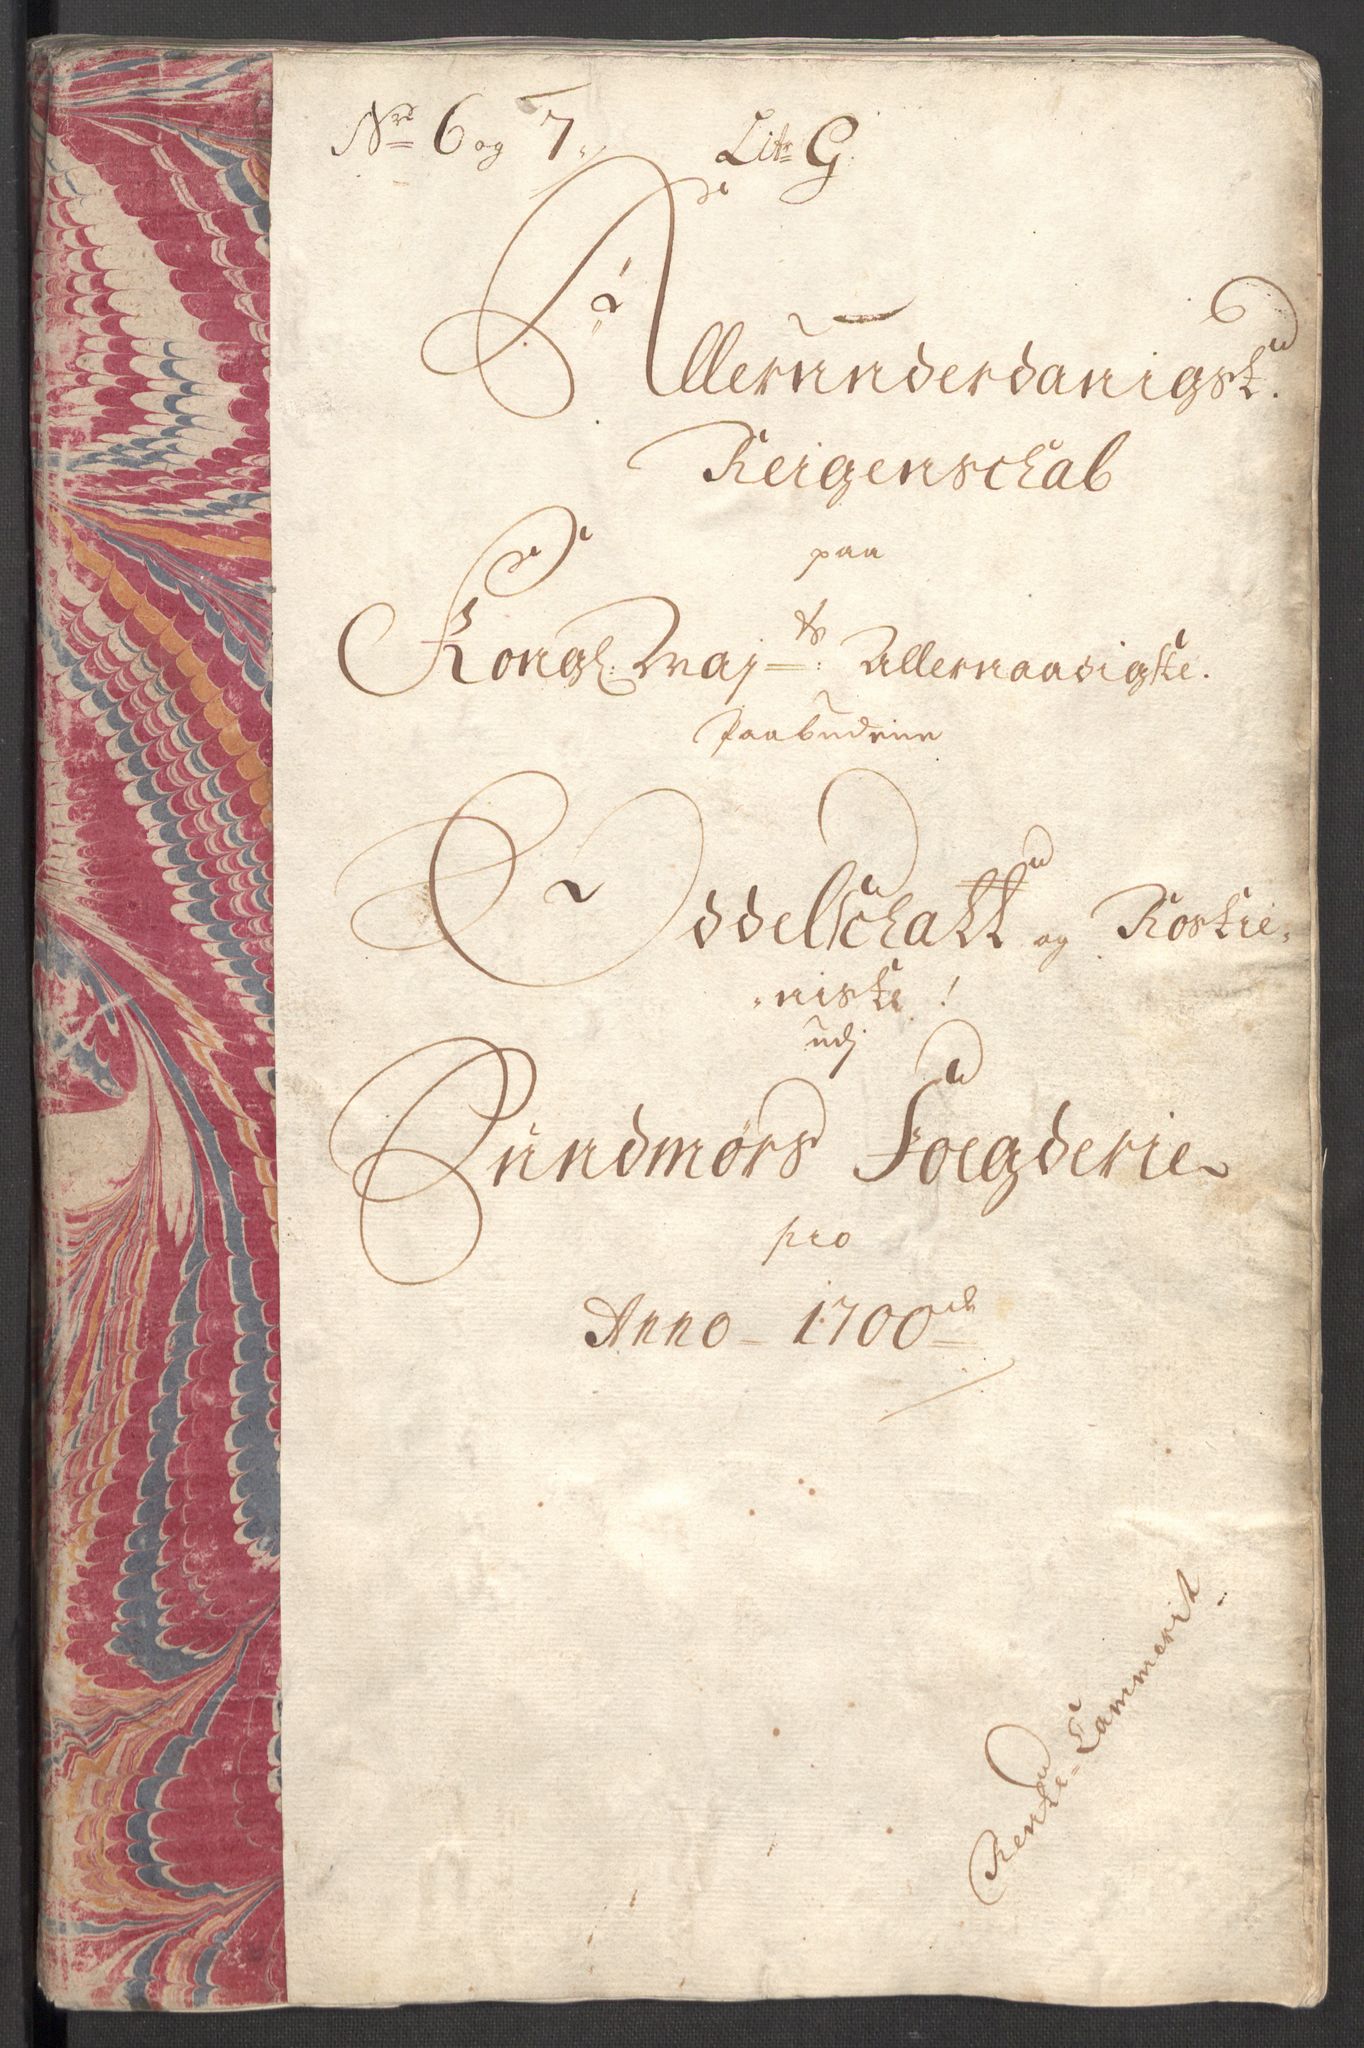 Nr 6 og 7. Litr G.
Allerunderdanigst.
Reigenschab
paa
Kongl: Maj-ts: Allernaadigste.
Paabudene
Oddelschatt og Rostie-
niste!
udj
Sundmørs Foegderie
pro
Anno 1700de
Rente-Cammerit